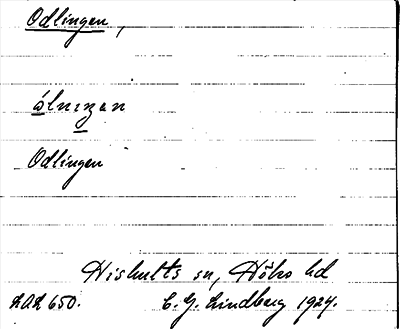 Odlingen,
ålnıŋan
Odlingen
Hishults sn, Höks hd
RAÄ 650. C. G. Lindberg 1924.